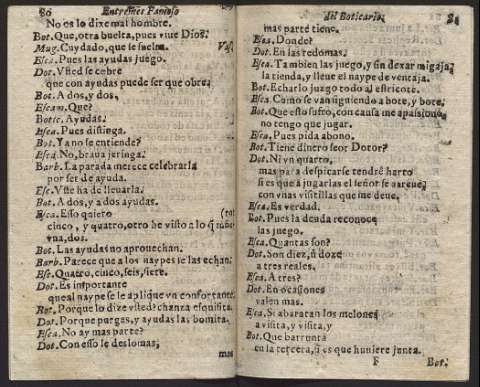 80 Entremes Famoso
No es lo dixe mal hombre.
Bot. Que, otra buelta, pues viue Dios.
Mug. Cuydado, que le suelta. Vas.
Esca. Pues las ayudas juego.
Dot. Vsted se cobre
que con ayudas puede ser que obre.
Bot. A dos, y dos.
Escam. Que?
Botic. Ayudas.
Esca. Pues distinga.
Bot. Ya no se entiende?
Esca. No, braua jeringa.
Barb. La parada merece celebrarla
por ser de ayuda.
Esc. Vste ha de lleuarla.
Bot. A dos, y a dos ayudas.
Esca. Esso quiero
cinco, y quatro, otro he visto a lo
vna, dos.
Bot. Las ayudas no aprouechan.
Barb. Parece que a los naypes las echan.
Esc. Quatro, cinco, seis, siete.
Dot. Es importante
que al naype se le aplique vn confortante.
Bot. Porque lo dize vsted? chanza esquisita.
Dot. Porque purgas, y ayudas las bomita.
Esca. No ay mas parte?
Dot. Con esso le deslomas,
mas
del Boticario. 81
mas parte tiene.
Esca. Donde?
Dot. En las redomas.
Esca. Tambien las juego, y sin dexar migaja,
la tienda, y lleue el naype de ventaja.
Bot. Echarlo juego todo al estricote.
Esca. Como se van siguiendo a bote, y bote.
Bot. Que esto sufro, con causa me apasiono,
no tengo que jugar.
Esca. Pues pida abono.
Bot. Tiene dinero seor Dotor?
Dot. Ni vn quarto,
mas para despicarse tendrè harto
si es que à jugarlas el señor se
con vnas visitillas que me deue.
Esca. Es verdad.
Bot. Pues la deuda reconoce
las juego.
Esca. Quantas son?
Dot. Son diez, ù doze
a tres reales.
Esca. A tres?
Dot. En ocasiones
valen mas.
Esca. Si abarataran los melones
a visita, y visita, y
Bot. Que barrunta
en la tercera, si es que huuiere junta.
F Bot.